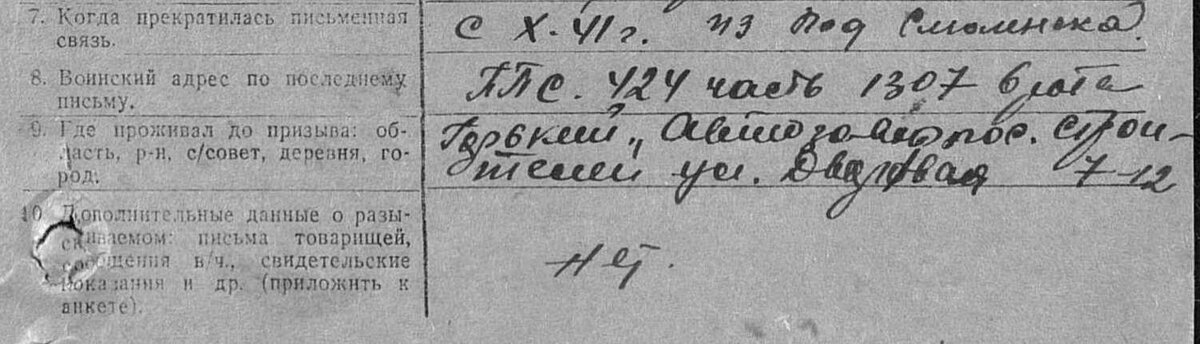 7. Когда прекратилась письменная
связь.
с X-41 г. из под Смоленска.
8. Воинский адрес по последнему
письму.
ППС. 424 часть 1307 6 рота
9. Где проживал до призыва: об-
ласть, р-н, с/совет, деревня, го-
род.
Горький, Автозавод пос. Строи-
телей ул. 7-12
10. Дополнительные данные о разы-
скиваемом: письма товарищей,
сообщения в/ч., свидетельские
показания и др. (приложить к
анкете).
нет.